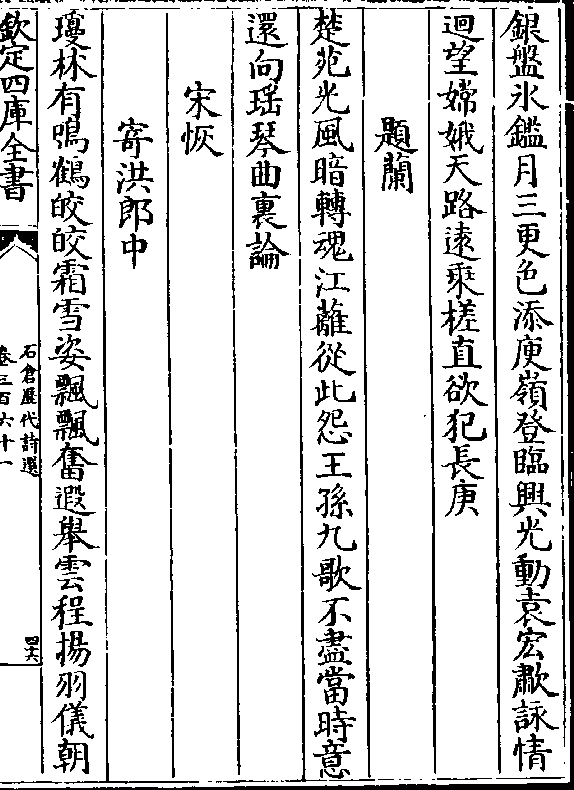 銀盤氷鑑月三更色添庾嶺登臨興光動袁宏歗詠情
迴望嫦娥天路遠乗槎直欲犯長庚
題蘭
楚苑光風暗轉魂江蘺從此怨王孫九歌不盡當時意
還向瑶琴曲裏論
宋恢
寄洪郎中
瓊林有鳴鶴皎皎霜雪姿飄飄奮遐舉雲程揚羽儀朝
欽定四庫全書
石倉歷代詩選
卷三百六十一
四六